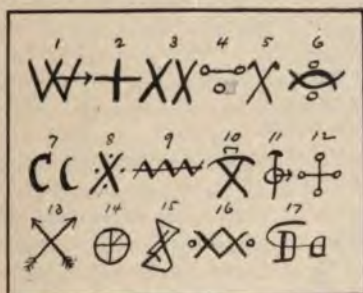 1 2 3 4 5 6
7 8 9 10 11 12
13 14 15 16 17